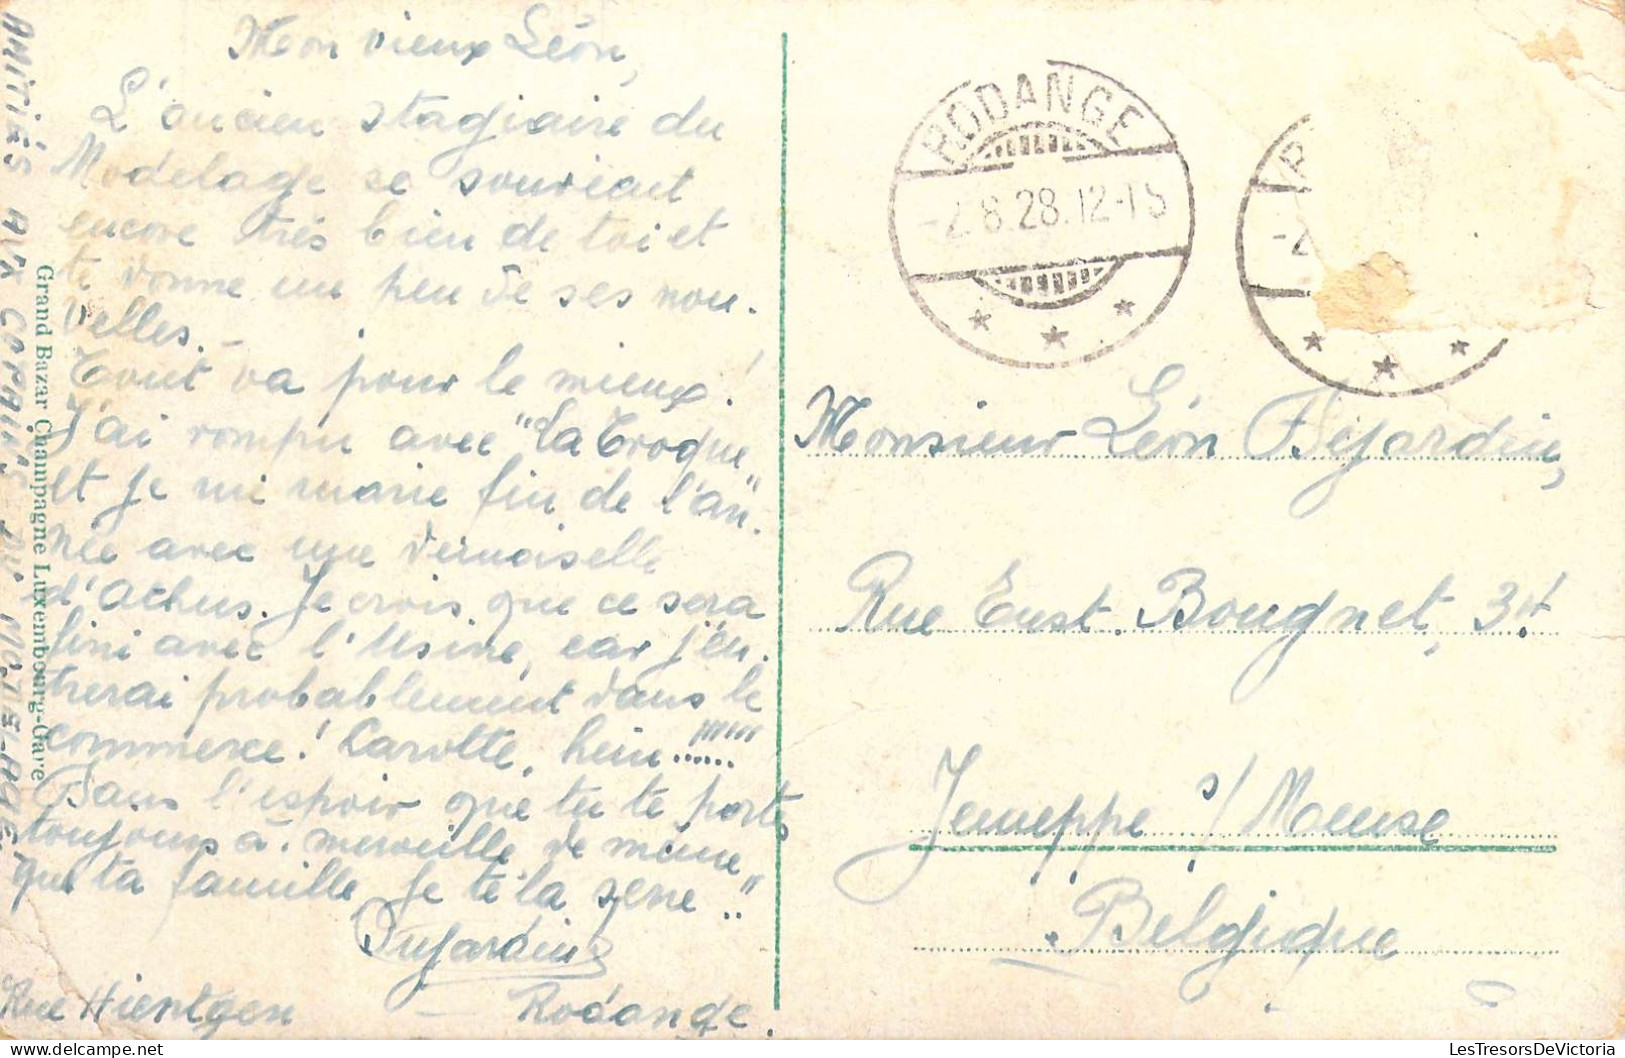 Mon vieux Léon,
L'ancien stagiaire du
Modelage se souvient
encore très bien de toi et
te donne un peu de ses nou-
velles.-
Tout va pour le mieux!
J'ai rompu avec "La Croque"
et je me marie fin de l'an-
née avec une demoiselle
d'Athus. Je crois que ce sera
fini avec l'Usine, car j'en-
trerai probablement dans le
commerce! Carotte, hein!!!!!!
Dans l'espoir que tu te portes
toujours à merveille, de même
que ta famille, je te la serre.."
Dujardin
Rue Hientgen - Rodange.
AMITIÉS AUX COPAINS DU MODELAGE
Grand Bazar Champagne Luxembourg-Gare
RODANGE
-2.8.28.12-15
R
-2
Monsieur Léon Dejardin,
Rue Ernst Bougnet, 34
Jemeppe s/Meuse
Belgique
LesTresorsDeVictoria